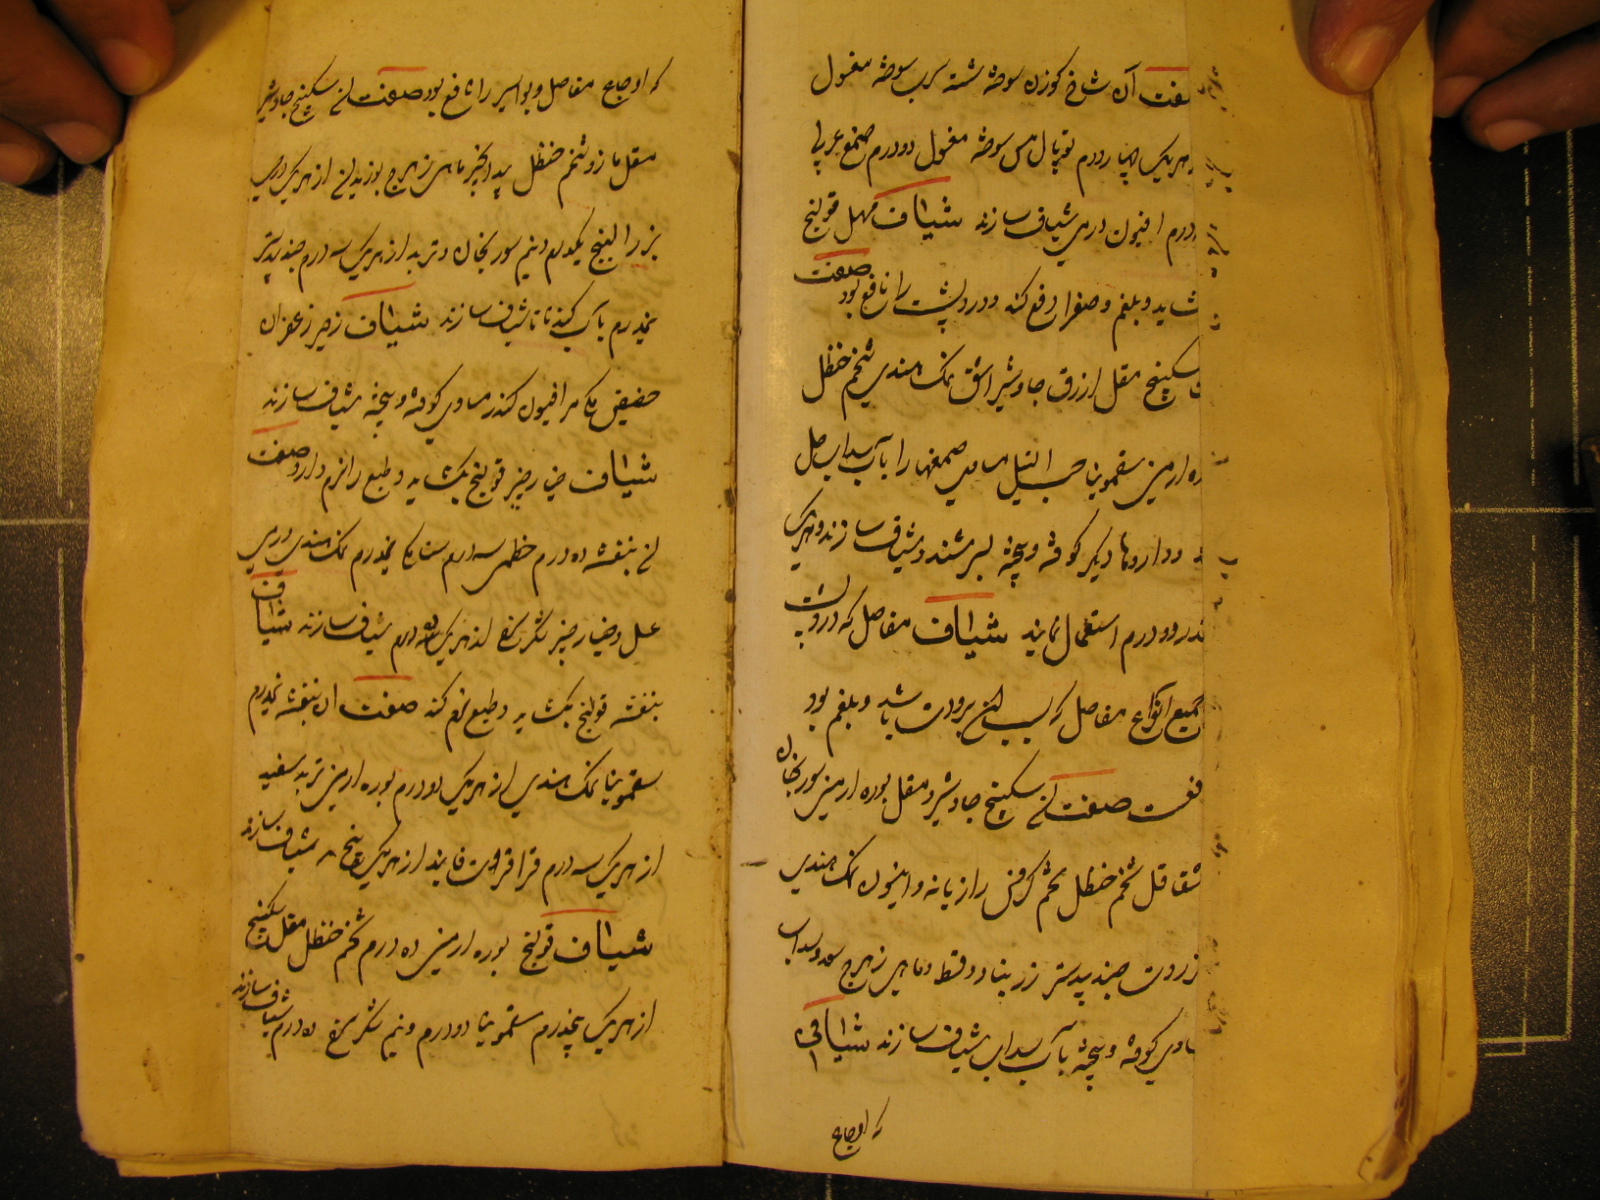 صفت آن شاخ کوزن سوخته شسته سرب سوخته مغسول
هریک چهاردرم توپال مس سوخته مغسول دودرم صمغ عربی
درم افیون درمی شیاف سازند شیاف مسهل قولنج
بکشاید و بلغم و صفرا دفع کند و درد پشت را نافع بود صفت
سکبینج مقل ازرق جاوشیر اشق نمک هندی شحم حنظل
بوره ارمنی سقمونیا حب النیل مساوی صمغها را بآب سداب حل
و داروها دیگر کوفته و بیخته بسرشند و شیاف سازند و هریک
دو درم استعمال نمایند شیاف مفاصل که درد پشت
جمیع انواع مفاصل که سبب آن برودت باشد و بلغم بود
صفت آن سکبینج جاوشیر و مقل بوره ارمنی سورنجان
شقاقل شحم حنظل تخم کرفس رازیانه و انیسون نمک هندی
جندبیدستر زرنباد و قسط و ماهی زهرج سداب
مساوی کوفته و بیخته بآب سداب شیاف سازند شیافی
که اوجاع
که اوجاع مفاصل و بواسیر را نافع بود صفت آن سکبینج جاوشیر
مقل مازو شحم حنظل ماهی زهرج بوزیدان از هریک درمی
بزر البنج یکدرم و نیم سورنجان و تربد از هریک سه درم جندبیدستر
پنجدرم بآب کندنا شیاف سازند شیاف زحیر زعفران
حضض مکی مر افیون کندر مساوی کوفته و بیخته شیاف سازند
شیاف خیارچنبر قولنج بکشاید و طبع را نرم دارد صفت
آن بنفشه ده درم خطمی سه درم سنا مکی پنجدرم نمک هندی درمی
عسل و خیارچنبر شکر سرخ از هریک ده درم شیاف سازند شیاف
بنفشه قولنج بکشاید و طبع نرم کند صفت آن بنفشه پنجدرم
سقمونیا نمک هندی از هریک دو درم بوره ارمنی تربد سفید
از هریک سه درم فانید از هریک پنج شیاف سازند
شیاف قولنج بوره ارمنی ده درم شحم حنظل مقل سکبینج
از هریک پنجدرم سقمونیا دودرم و نیم شکر سرخ ده درم شیاف سازند